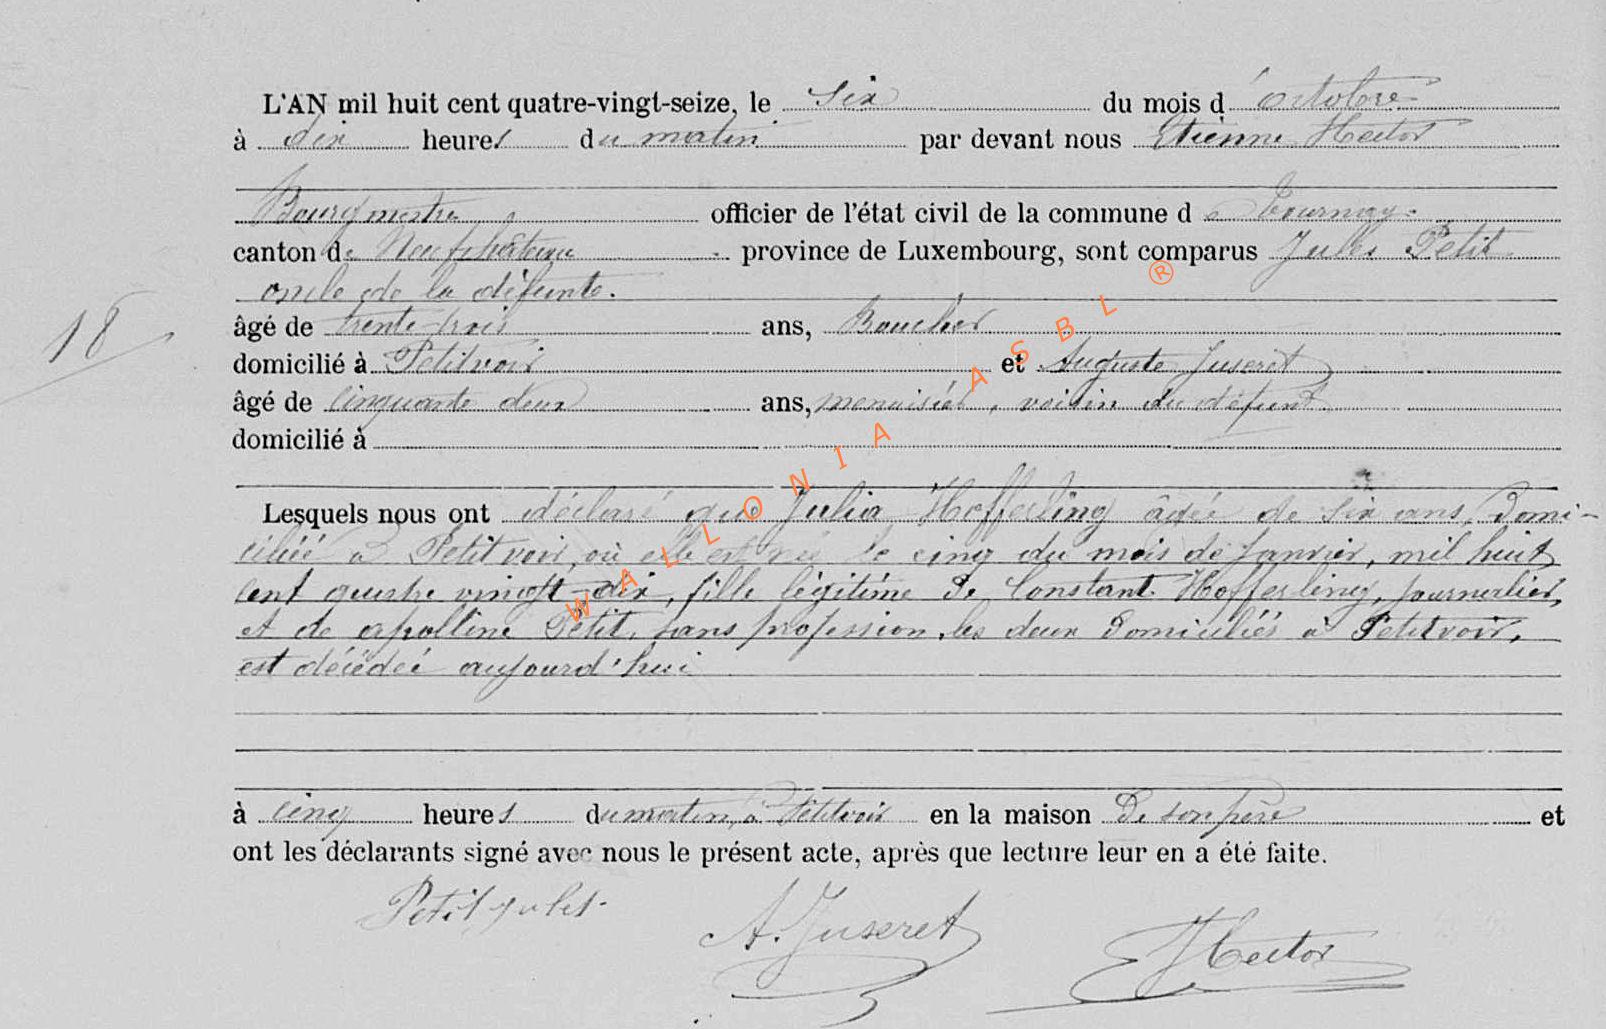 L'AN mil huit cent quatre-vingt-seize, le six du mois d'octobre
à dix heures du matin par devant nous Etienne Hector
Bourgmestre officier de l'état civil de la commune de Tournay
canton de Neufchâteau province de Luxembourg, sont comparus Jules Petit
oncle de la défunte.
âgé de trente-trois ans, Boucher
domicilié à Petitvoir et Auguste Juseret
âgé de cinquante deux ans, menuisier, voisin du défunt
domicilié à
18
Lesquels nous ont déclaré que Julia Hofferling âgée de six ans, Domi-
ciliée à Petitvoir, où elle est née le cinq du mois de Janvier, mil huit
cent quatre vingt-dix, fille légitime de Constant Hofferling, journalier,
et de apolline Petit, sans profession, les deux domiciliés à Petitvoir,
est décédée aujourd'hui
à cinq heures du matin, à Petitvoir en la maison de son père et
ont les déclarants signé avec nous le présent acte, après que lecture leur en a été faite.
Petit Jules.
A. Juseret
E Hector
WALLONIA ASBL ®